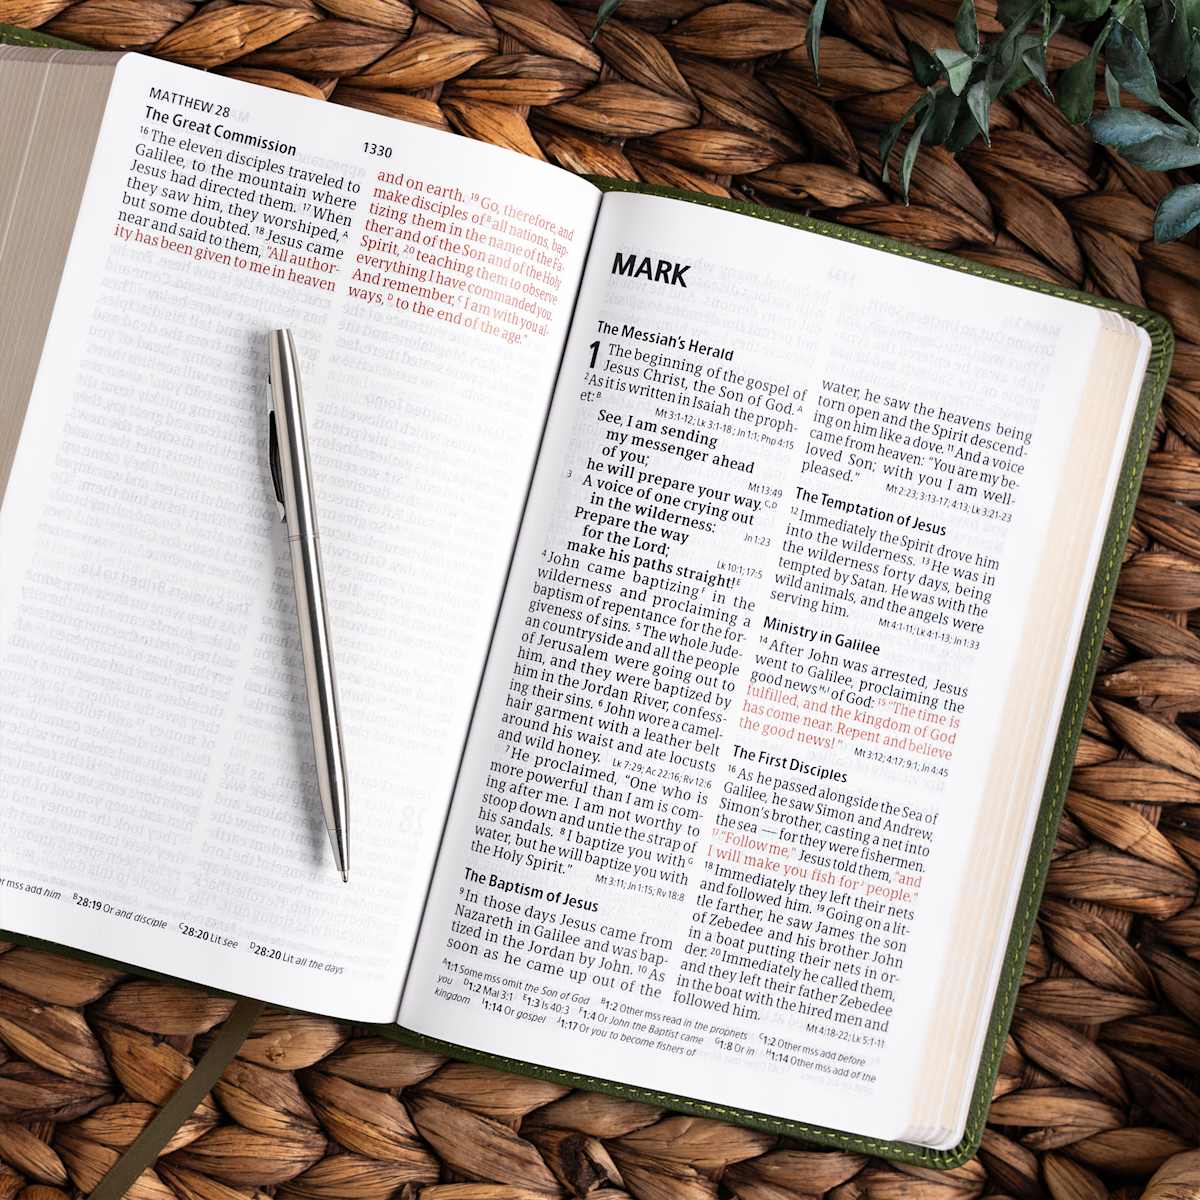 MATTHEW 28
1330
The Great Commission
16 The eleven disciples traveled to
Galilee, to the mountain where
Jesus had directed them. 17 When
they saw him, they worshiped, A
but some doubted. 18 Jesus came
near and said to them, "All author-
ity has been given to me in heaven
and on earth. 19 Go, therefore, and
make disciples of B all nations, bap-
tizing them in the name of the Fa-
ther and of the Son and of the Holy
Spirit, 20 teaching them to observe
everything I have commanded you.
And remember, C I am with you al-
ways, D to the end of the age."
er mss add him B 28:19 Or and disciple C 28:20 Lit see D 28:20 Lit all the days
MARK
The Messiah's Herald
1 The beginning of the gospel of
Jesus Christ, the Son of God. A
2 As it is written in Isaiah the proph-
et: B
Mt 3:1-12; Lk 3:1-18; Jn 1:1; Php 4:15
See, I am sending
my messenger ahead
of you;
Mt 13:49
he will prepare your way. C,D
3 A voice of one crying out
in the wilderness:
Jn 1:23
Prepare the way
for the Lord;
Lk 10:1; 17:5
make his paths straight! E
4 John came baptizing F in the
wilderness and proclaiming a
baptism of repentance for the for-
giveness of sins. 5 The whole Jude-
an countryside and all the people
of Jerusalem were going out to
him, and they were baptized by
him in the Jordan River, confess-
ing their sins. 6 John wore a camel-
hair garment with a leather belt
around his waist and ate locusts
and wild honey. Lk 7:29; Ac 22:16; Rv 12:6
7 He proclaimed, "One who is
more powerful than I am is com-
ing after me. I am not worthy to
stoop down and untie the strap of
his sandals. 8 I baptize you with G
water, but he will baptize you with
the Holy Spirit." Mt 3:11; Jn 1:15; Rv 18:8
The Baptism of Jesus
9 In those days Jesus came from
Nazareth in Galilee and was bap-
tized in the Jordan by John. 10 As
soon as he came up out of the
water, he saw the heavens being
torn open and the Spirit descend-
ing on him like a dove. 11 And a voice
came from heaven: "You are my be-
loved Son; with you I am well-
pleased." Mt 2:23; 3:13-17; 4:13; Lk 3:21-23
The Temptation of Jesus
12 Immediately the Spirit drove him
into the wilderness. 13 He was in
the wilderness forty days, being
tempted by Satan. He was with the
wild animals, and the angels were
serving him. Mt 4:1-11; Lk 4:1-13; Jn 1:33
Ministry in Galilee
14 After John was arrested, Jesus
went to Galilee, proclaiming the
good news H,I of God: 15 "The time is
fulfilled, and the kingdom of God
has come near. Repent and believe
the good news!" Mt 3:12; 4:17; 9:1; Jn 4:45
The First Disciples
16 As he passed alongside the Sea of
Galilee, he saw Simon and Andrew,
Simon's brother, casting a net into
the sea — for they were fishermen.
17 "Follow me," Jesus told them, "and
I will make you fish for J people."
18 Immediately they left their nets
and followed him. 19 Going on a lit-
tle farther, he saw James the son
of Zebedee and his brother John
in a boat putting their nets in or-
der. 20 Immediately he called them,
and they left their father Zebedee
in the boat with the hired men and
followed him. Mt 4:18-22; Lk 5:1-11
A 1:1 Some mss omit the Son of God B 1:2 Other mss read in the prophets C 1:2 Other mss add before
you D 1:2 Mal 3:1 E 1:3 Is 40:3 F 1:4 Or John the Baptist came G 1:8 Or in H 1:14 Other mss add of the
kingdom I 1:14 Or gospel J 1:17 Or you to become fishers of